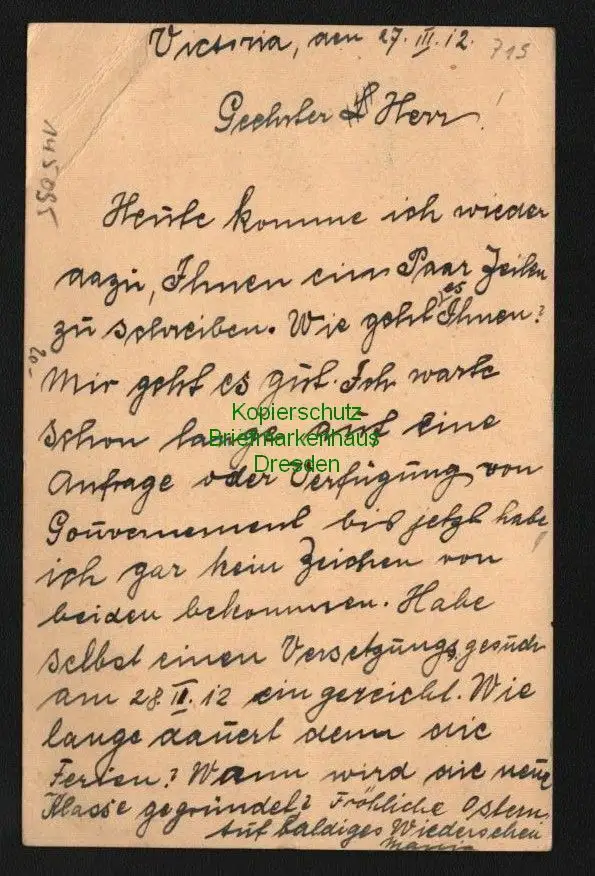 Victoria, den 27. III. 12.
715
Geehrter Herr!
145095
Heute komme ich wieder
dazu, Ihnen ein Paar Zeilen
zu schreiben. Wie geht es Ihnen?
20.-
Mir geht es gut. Ich warte
schon lange auf eine
Anfrage oder Verfügung von
Gouvernement bis jetzt habe
ich gar kein Zeichen von
beiden bekommen. Habe
selbst einen Versetzungsgesuch
am 28. II. 12 eingereicht. Wie
lange dauert denn die
Ferien? Wann wird die neue
Klasse gegründet? Fröhliche Ostern
Auf baldiges Wiedersehen
Kopierschutz
Briefmarkenhaus
Dresden